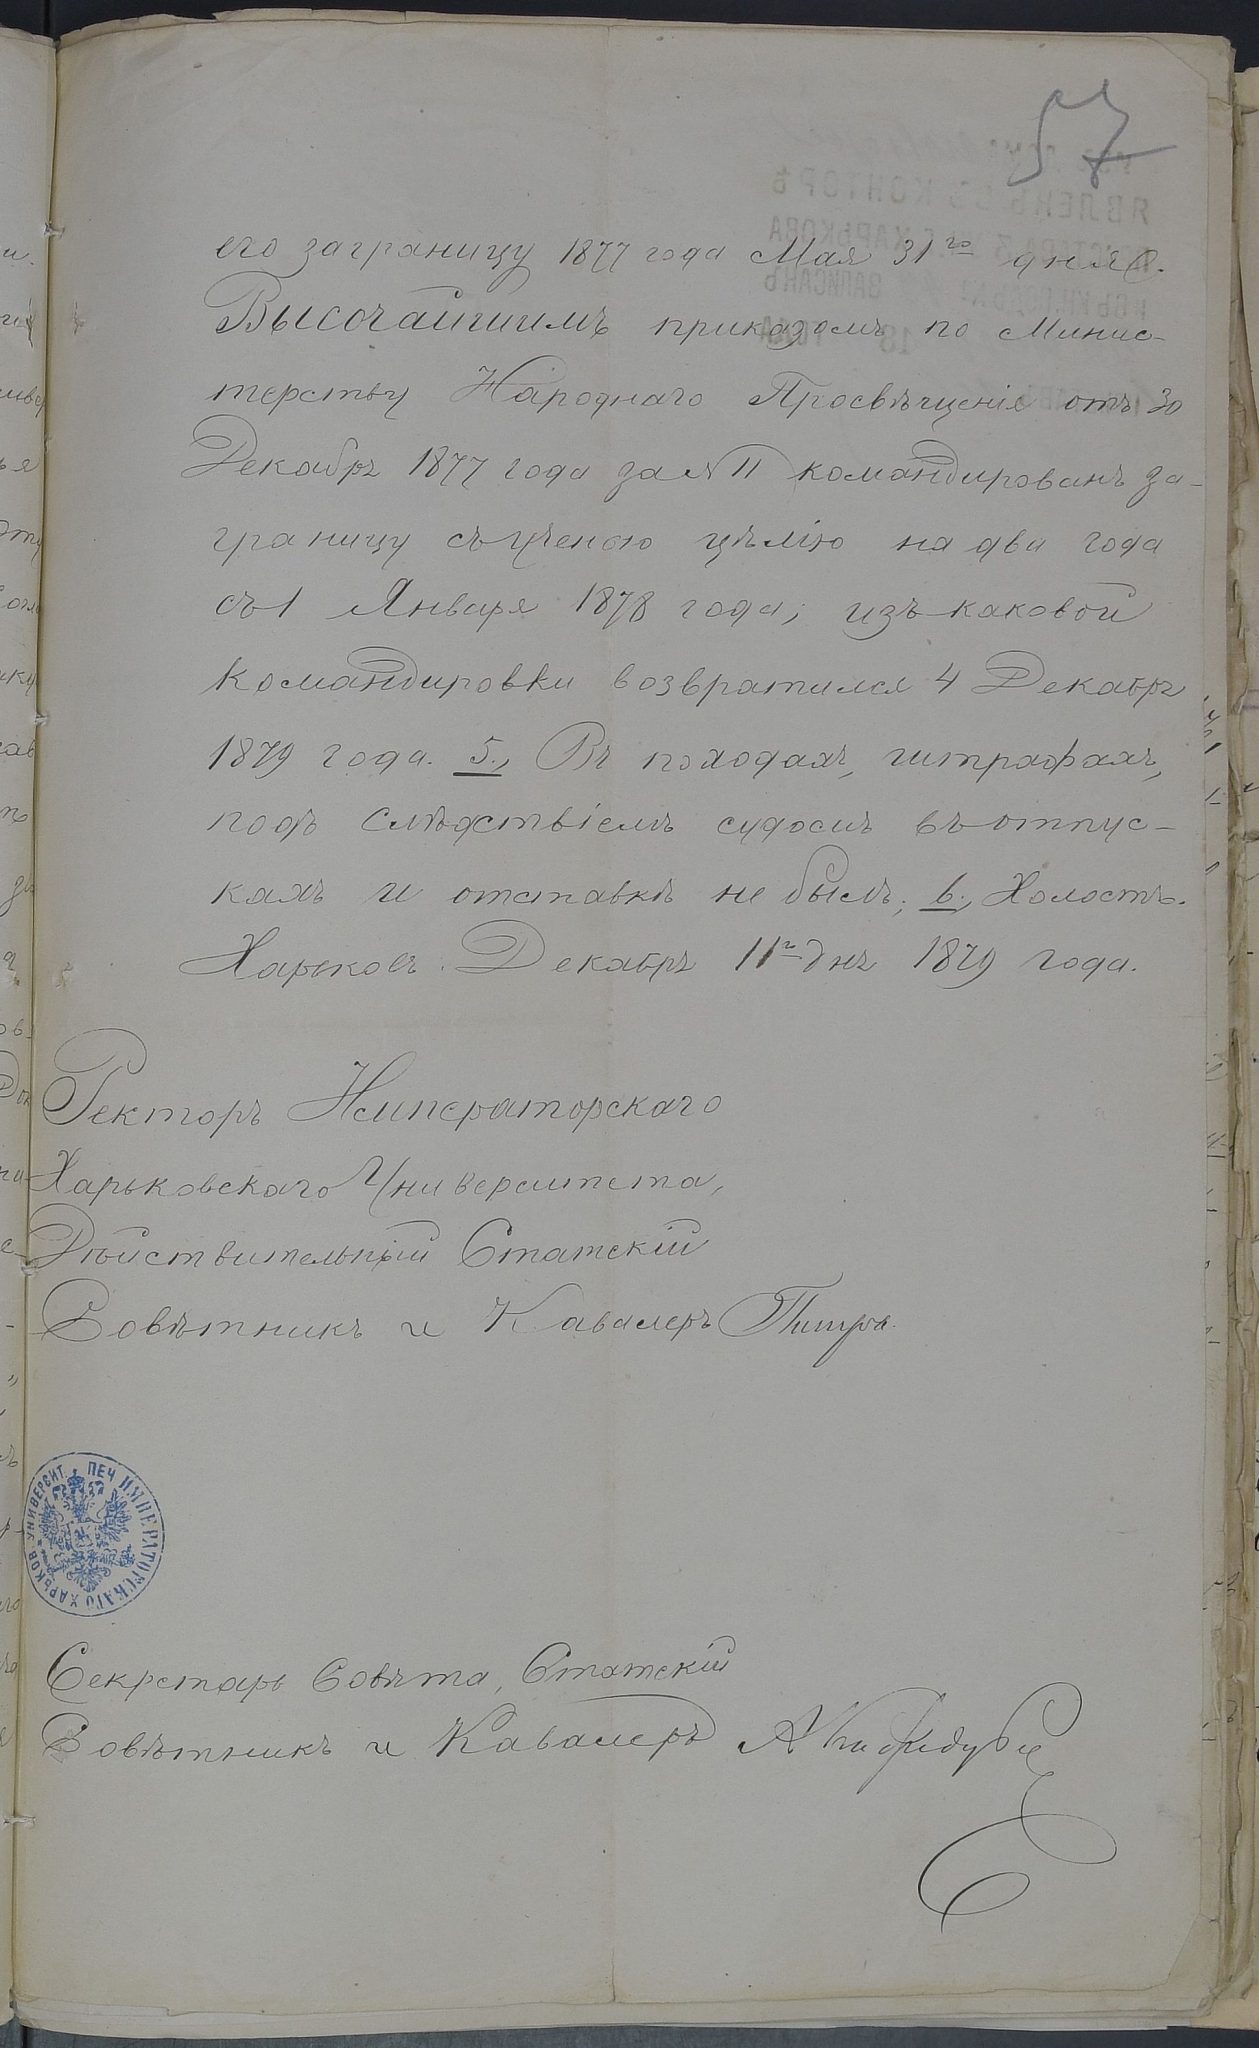 57
его заграницу 1877 года Мая 31го дня.
Высочайшимъ приказомъ по Минис-
терству Народнаго Просвѣщенія отъ 30
Декабря 1877 года за № 11 командированъ за-
границу съ ученою цѣлію на два года
съ 1 Января 1878 года; изъ каковой
командировки возвратился 4 Декабря
1879 года. 5., Въ походахъ, штрафахъ,
подъ слѣдствіемъ судомъ въ отпус-
кахъ и отставкѣ не былъ; 6., Холостъ.
Харьковъ. Декабря 11го дня 1879 года.
Ректоръ Императорскаго
Харьковскаго Университета,
Дѣйствительный Статскій
Совѣтникъ и Кавалеръ Питра
ПЕЧ ИМПЕРАТОРСКАГО ХАРЬКОВ. УНИВЕРСИТ.
Секретарь Совѣта, Статскій
Совѣтникъ и Кавалеръ